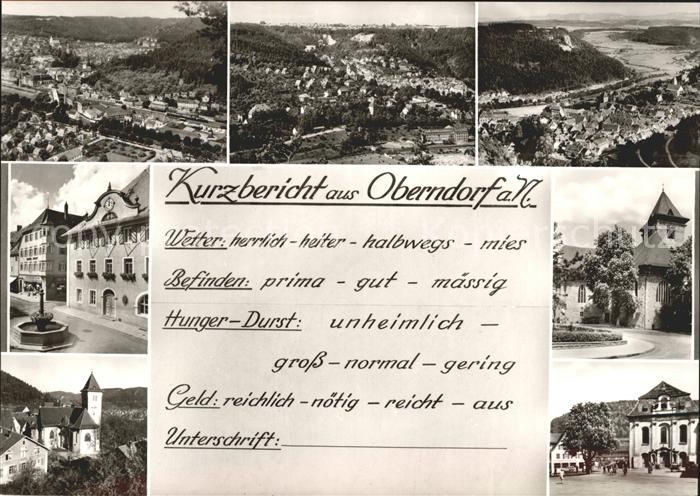 Kurzbericht aus Oberndorf a/N.
Wetter: herrlich - heiter - halbwegs - mies
Befinden: prima - gut - mässig
Hunger-Durst: unheimlich -
groß - normal - gering
Geld: reichlich - nötig - reicht - aus
Unterschrift: